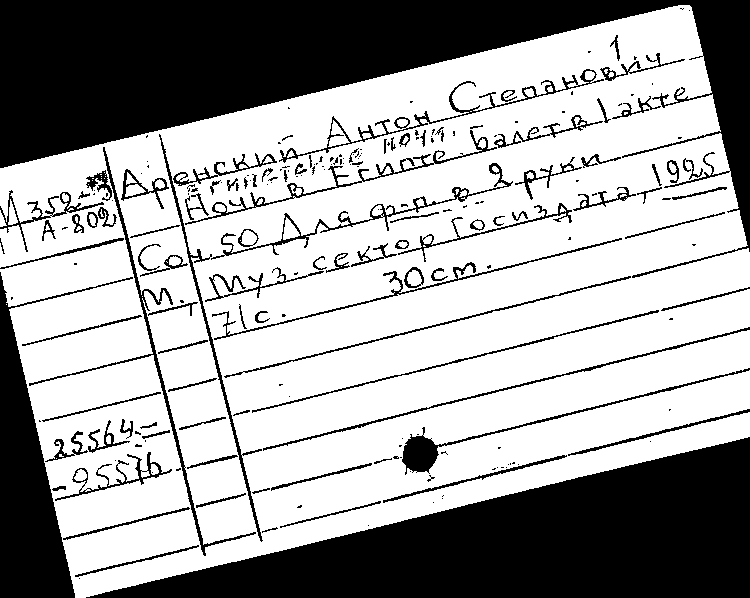 1
Аренский Антон Степанович
Египетские ночи.
Ночь в Египте Балет в 1 акте
352-
А-802
Соч. 50 Для ф-п. в 2 руки
М., Муз. сектор Госиздата, 1925
71с. 30см.
25564-
-25576